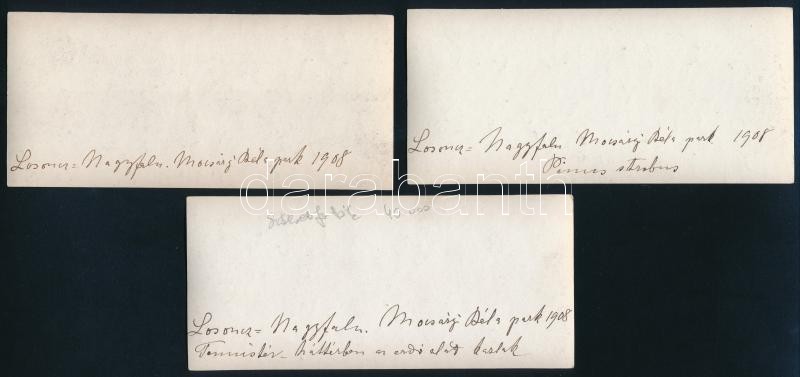 Losoncz= Nagyfalu. Mocsáry Béla park 1908
Losoncz= Nagyfalu Mocsáry Béla park 1908
Pinus strobus
darabanth.com
45
Losoncz= Nagyfalu. Mocsáry Béla park 1908
Tennistér– háttérben az erdő alatt kaszlak